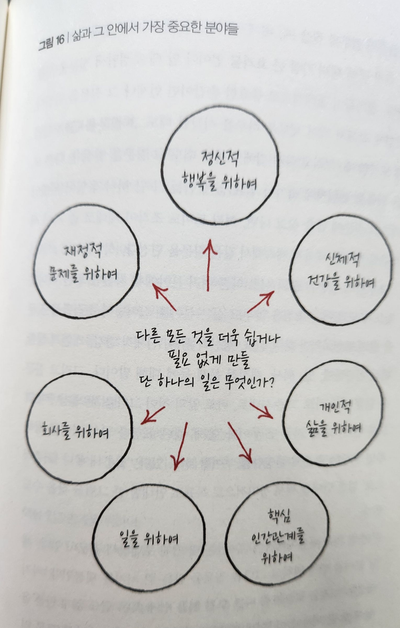 그림 16 | 삶과 그 안에서 가장 중요한 분야들
정신적
행복을 위하여
재정적
문제를 위하여
신체적
건강을 위하여
다른 모든 것을 더욱 쉽거나
필요 없게 만들
단 하나의 일은 무엇인가?
회사를 위하여
개인적
삶을 위하여
일을 위하여
핵심
인간관계를
위하여